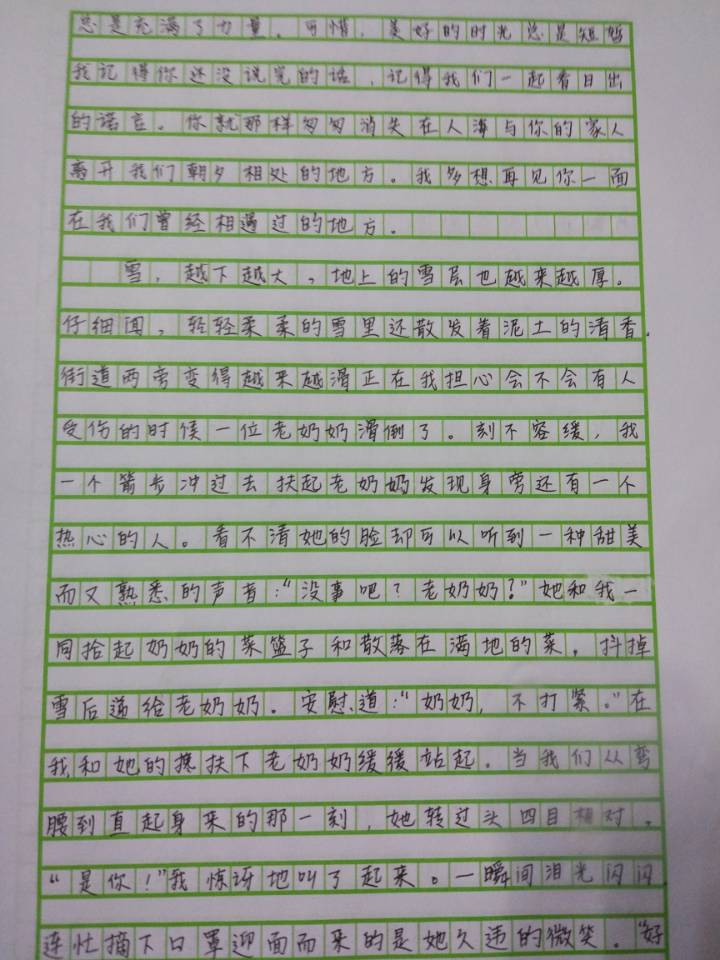 总是充满了力量。可惜，美好的时光总是短暂
我记得你还没说完的话，记得我们一起看日出
的谣言。你就那样匆匆消失在人海与你的家人
离开我们朝夕相处的地方。我多想再见你一面
在我们曾经相遇过的地方。
雪，越下越大，地上的雪层也越来越厚。
仔细闻，轻轻柔柔的雪里还散发着泥土的清香.
街道两旁变得越来越滑正在我担心会不会有人
受伤的时候一位老奶奶滑倒了。刻不容缓，我
一个箭步冲过去扶起老奶奶发现身旁还有一个
热心的人。看不清她的脸却可以听到一种甜美
而又熟悉的声音：“没事吧？老奶奶？”她和我一
同拾起奶奶的菜篮子和散落在满地的菜，抖掉
雪后递给老奶奶．安慰道：“奶奶，不打紧。”在
我和她的搀扶下老奶奶缓缓站起．当我们从弯
腰到直起身来的那一刻，她转过头四目相对．
“是你！”我惊讶地叫了起来。一瞬间泪光闪闪
连忙摘下口罩迎面而来的是她久违的微笑．“好